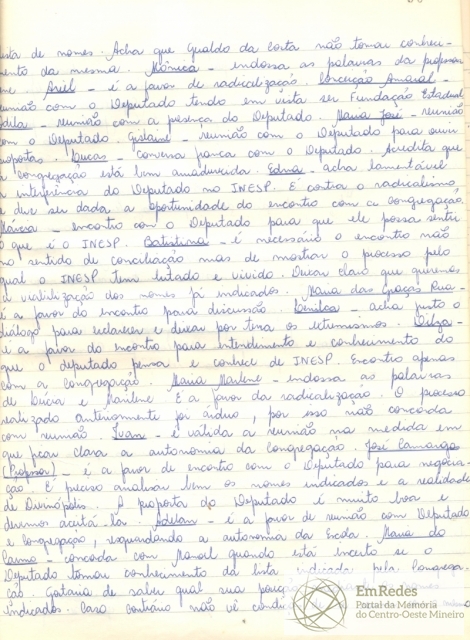 lista de nomes. Acha que Gualdo da Costa não tomou conheci-
mento da mesma. Mônica - endossa as palavras da professora
Ariel - é a favor de radicalização. Conceição Amaral -
reunião com o Deputado tendo em vista ser Fundação Estadual
- reunião com a presença do Deputado. Maria José - reunião
com o Deputado. Gislaine - reunião com o Deputado para ouvir
propostas. Lucas - conversa franca com o Deputado. Acredita que
a congregação está bem amadurecida. Edna - acha lamentável
a interferência do Deputado no INESP. É contra o radicalismo,
e deve ser dada a oportunidade do encontro com a Congregação.
Márcia - encontro com o Deputado para que ele possa sentir
o que é o INESP. Batistina - é necessário o encontro não
no sentido de conciliação mas de mostrar o processo pelo
qual o INESP tem lutado e vivido. Deixar claro que queremos
a realização dos nomes já indicados. Maria das Graças Rua -
é a favor do encontro para discussão. Benilca - acha justo o
diálogo para esclarecer e deixar por terra os extremismos. Dilza -
é a favor do encontro para entendimento e conhecimento do
que o deputado pensa e conhece de INESP. Encontro apenas
com a Congregação. Maria Marlene - endossa as palavras
de e Marilene. É a favor da radicalização. O processo
realizado anteriormente foi árduo, por isso não concorda
com reunião. Ivan - é válida a reunião na medida em
que ficar clara a autonomia da congregação. José Camargo
(Professor) - é a favor de encontro com o Deputado para negocia-
ção. É preciso analisar bem os nomes indicados e a realidade
de Divinópolis. A proposta do Deputado é muito boa e
devemos aceitá-la. Adelan - é a favor de reunião com Deputado
e Congregação, resguardando a autonomia da Escola. Maria do
Carmo - concorda com Manoel quando está incerto se o
Deputado tomou conhecimento da lista indicada pela Congrega-
ção. Gostaria de saber qual sua
indicados. Caso contrário não vê
EmRedes
Portal da Memória
do Centro-Oeste Mineiro